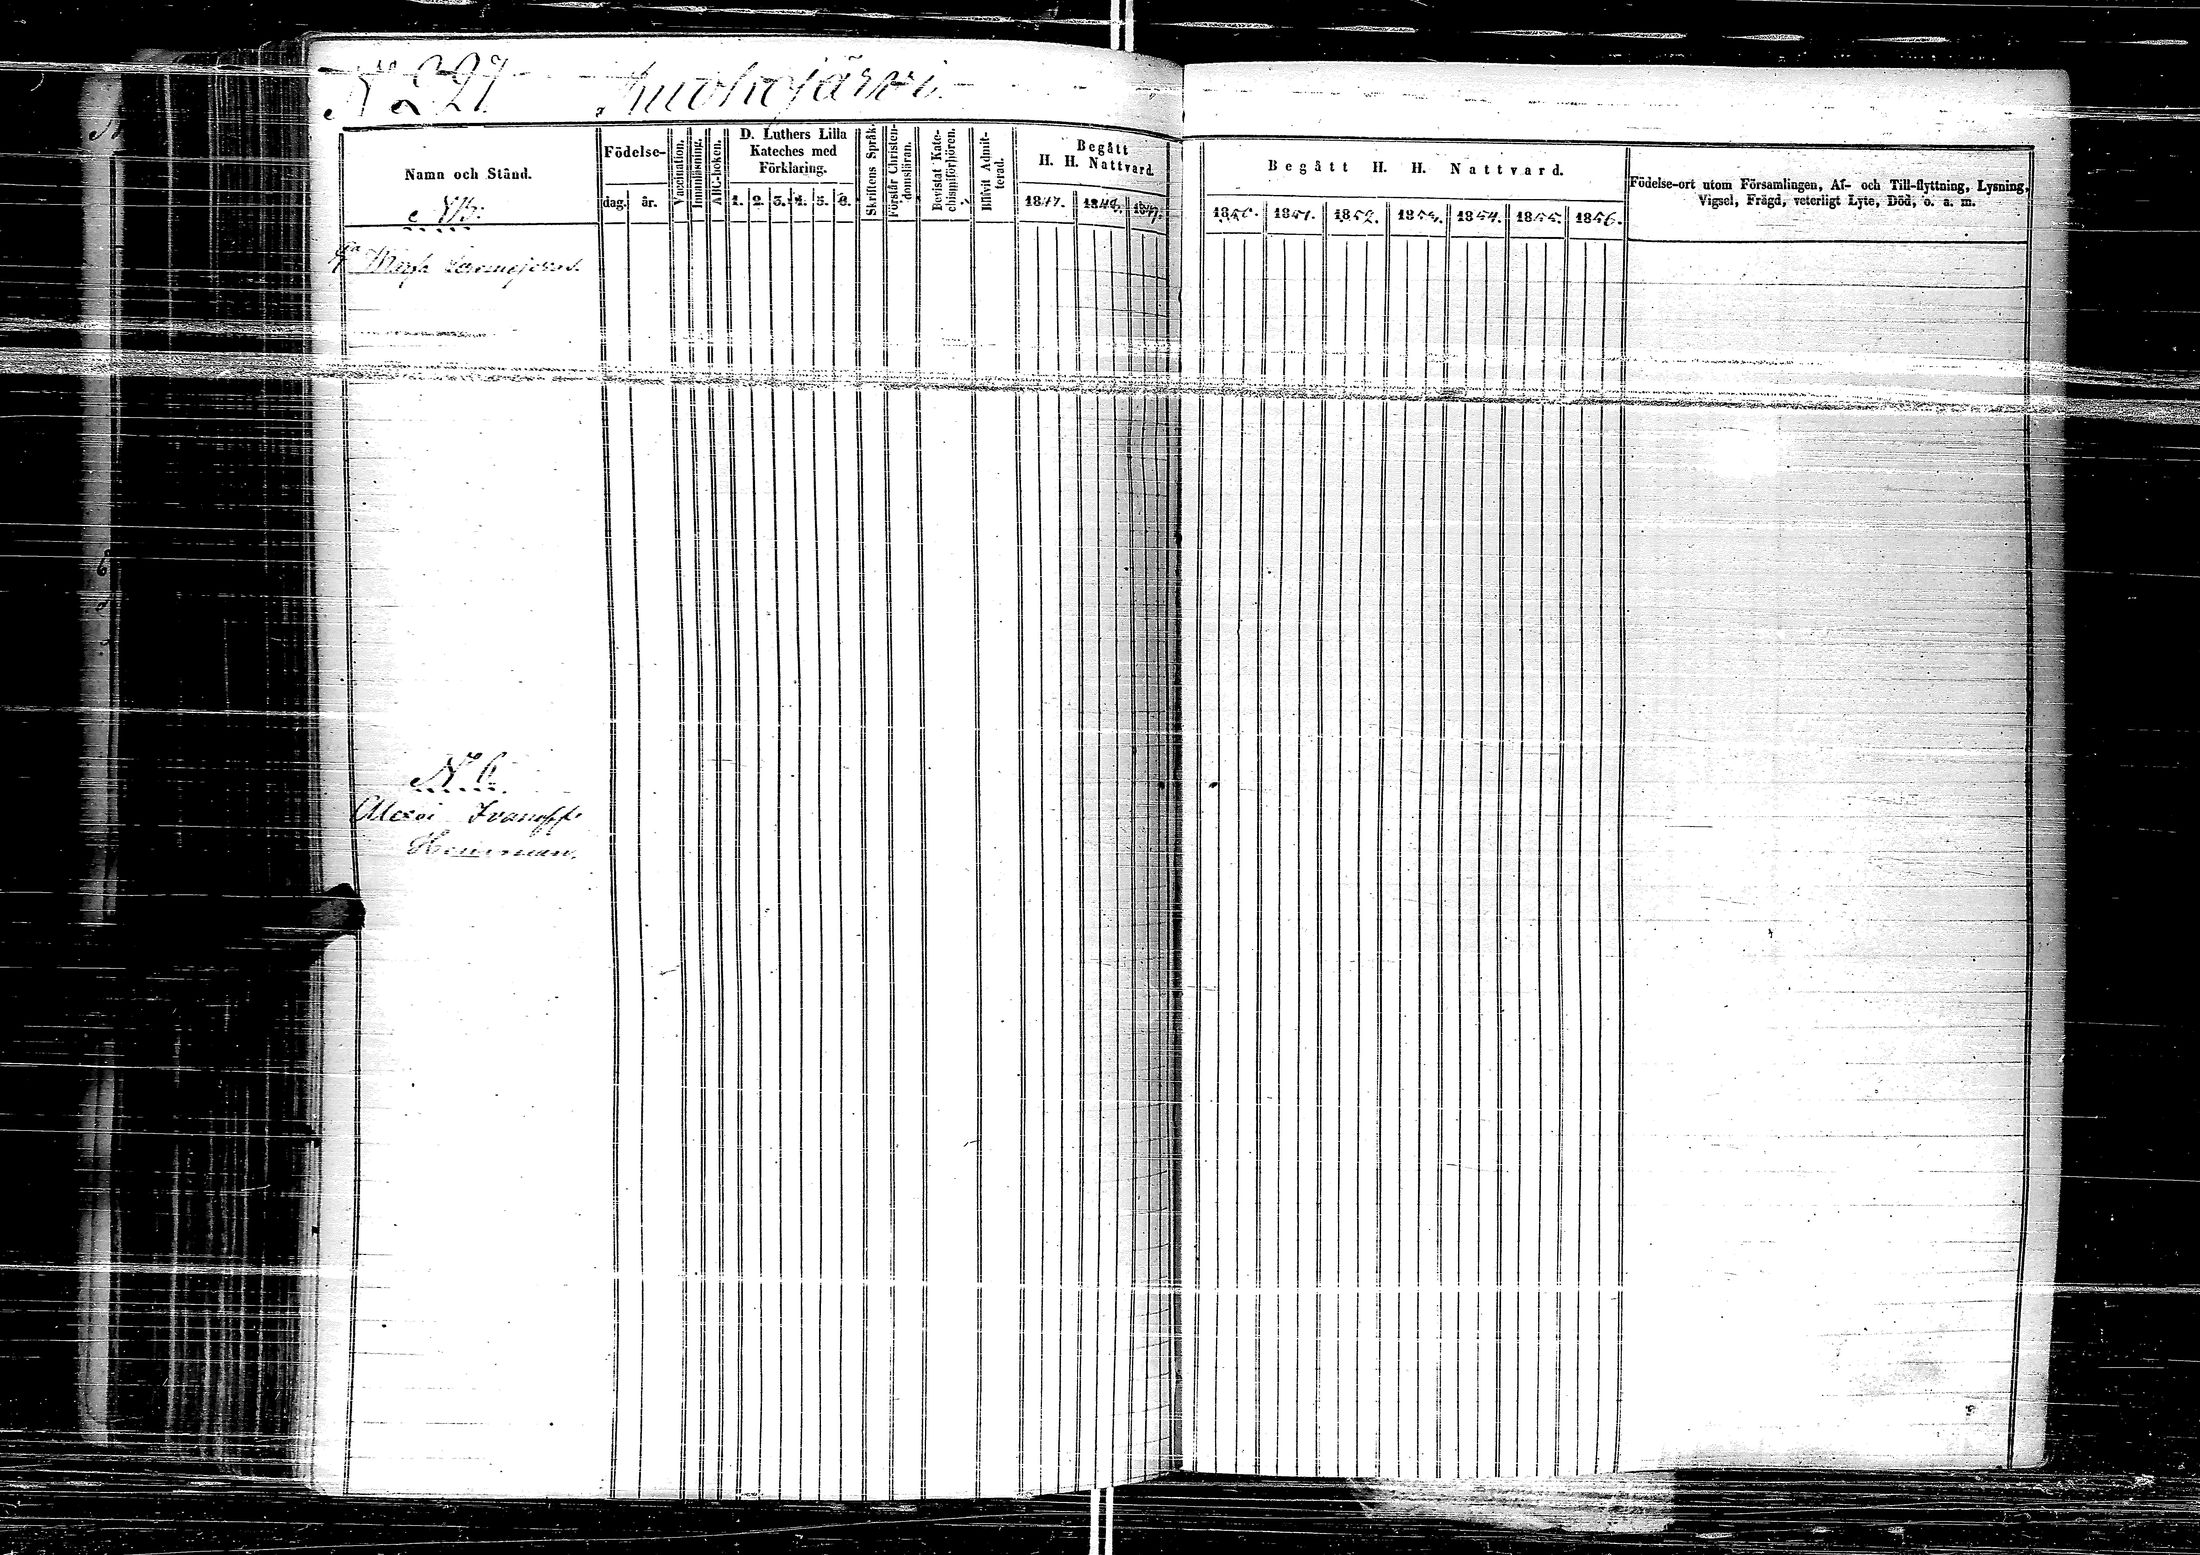 N 227 Kuohojärvi
Namn och Stånd.
Födelse-
dag. år.
Vaccination.
Innanläsning.
ABC-boken.
D. Luthers Lilla
Kateches med
Förklaring.
1. 2. 3. 4. 5. 6.
Skriftens Språk.
Förstår Christen-
domsläran.
Bevistat Kate-
chismiförhören.
Blifvit Admit-
terad.
Begått
H. H. Nattvard.
1847. 1848. 1849.
Begått H. H. Nattvard.
1850. 1851. 1852. 1853. 1854. 1855. 1856.
Födelse-ort utom Församlingen, Af- och Till-flyttning, Lysning,
Vigsel, Frägd, veterligt Lyte, Död, o. a. m.
N. 6.
Alexei Ivanoff